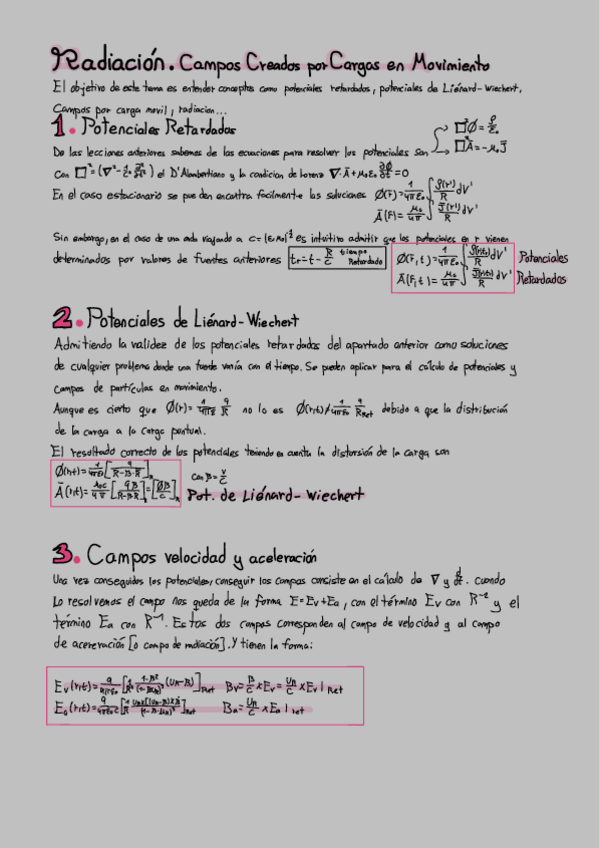 Radiación. Campos Creados por Cargas en Movimiento
El objetivo de este tema es entender conceptos como potenciales retardados, potenciales de Liénard-Wiechert,
Campos por carga movil, radiacion...
1. Potenciales Retardados
□²Ø = ρ/ε₀
De las lecciones anteriores sabemos de las ecuaciones para resolver los potenciales son □²Ā = -μ₀J̄
Con □² = (∇² - 1/c² ∂²/∂t²) el D'Alambertiano y la condicion de Lorenz ∇·Ā + μ₀ε₀ ∂Ø/∂t = 0
En el caso estacionario se pueden encontra facilmente las soluciones Ø(r̄) = 1/4πε₀ ∫ ρ(r')/R dV'
Ā(r̄) = μ₀/4π ∫ J̄(r')/R dV'
Sin embargo, en el caso de una onda viajando a c = (ε₀μ₀)^-1/2 es intuitivo admitir que los potenciales en r vienen
determinados por valores de fuentes anteriores tr = t - R/c tiempo Retardado Ø(r̄,t) = 1/4πε₀ ∫ ρ(r',tr)/R dV' Potenciales
Ā(r̄,t) = μ₀/4π ∫ J̄(r',tr)/R dV' Retardados
2. Potenciales de Liénard-Wiechert
Admitiendo la validez de los potenciales retardados del apartado anterior como soluciones
de cualquier problema donde una fuente varía con el tiempo. Se pueden aplicar para el cálculo de potenciales y
campos de partículas en movimiento.
Aunque es cierto que Ø(r) = 1/4πε₀ q/R no lo es Ø(r,t) ≠ 1/4πε₀ q/R Ret debido a que la distribución
de la carga a la carga puntual.
El resultado correcto de los potenciales teniendo en cuenta la distorsión de la carga son
Ø(r,t) = 1/4πε₀ [q/R-B·R]R con B = v/c
Ā(r,t) = μ₀c/4π [qB/R-B·R]R = [ØB/c]R Pot. de Liénard-Wiechert
3. Campos velocidad y aceleración
Una vez conseguidos los potenciales, conseguir los campos consiste en el cálculo de ∇ y ∂/∂t. Cuando
lo resolvemos el campo nos queda de la forma E = Ev + Ea, con el término Ev con R⁻² y el
término Ea con R⁻¹. Estos dos campos corresponden al campo de velocidad y al campo
de acereración [o campo de radiación]. Y tienen la forma:
Ev(r,t) = q/4πε₀ [1/R² 1-B²/(1-B·uR)³ (uR-B)]Ret Bv = B/c × Ev = uR/c × Ev | Ret
Ea(r,t) = q/4πε₀c [1/R uR×[(uR-B)×Ḃ]/(1-B·uR)³]Ret Ba = uR/c × Ea | ret